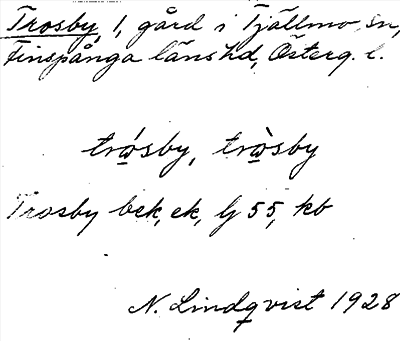 Trosby, 1, gård i Tjällmo sn,
Finspånga läns hd, Österg. l.
trώsby, trὼsby
Trosby bek, ek, lj 55, kb
N. Lindqvist 1928